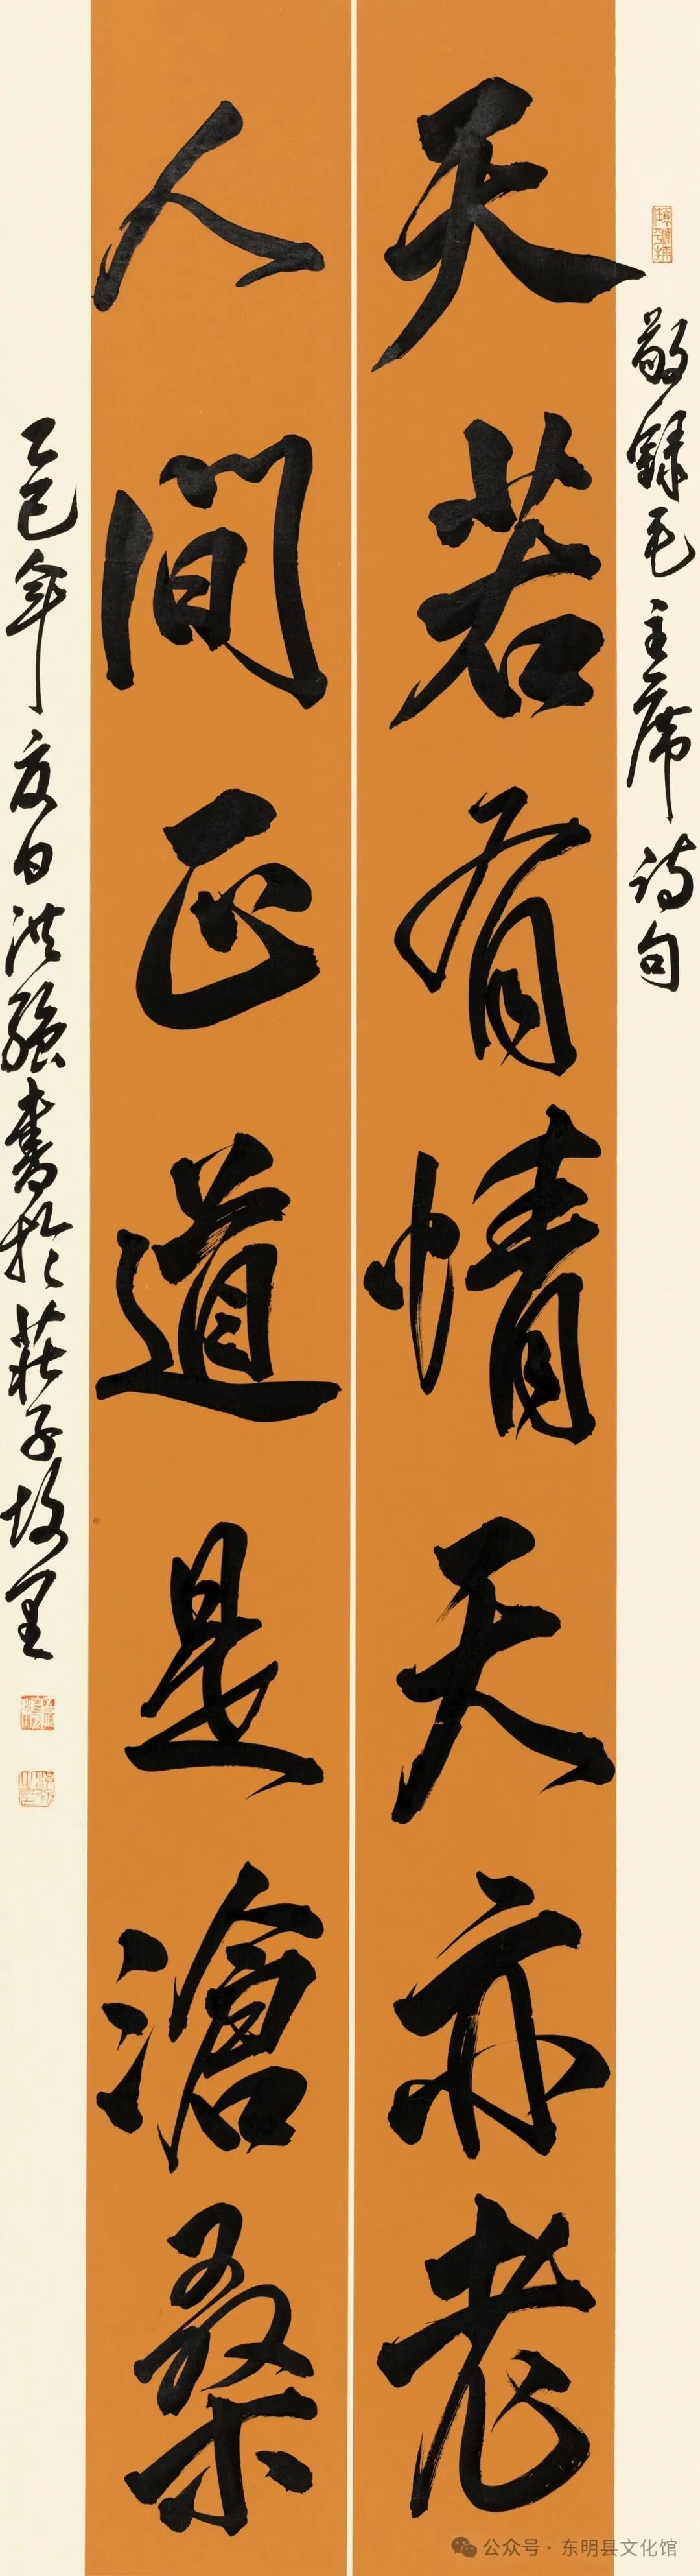 敬録毛主席詩句
天若有情天亦老
人間正道是滄桑
乙巳年夏日洪强書於莊子故里
公众号·东明县文化馆